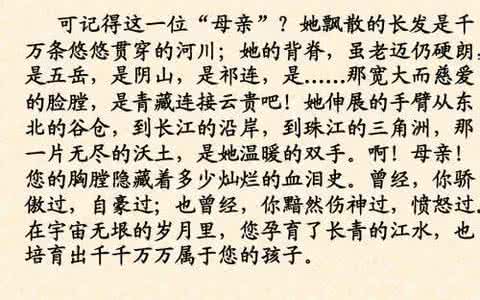 可记得这一位“母亲”？她飘散的长发是千
万条悠悠贯穿的河川；她的背脊，虽老迈仍硬朗，
是五岳，是阴山，是祁连，是……那宽大而慈爱
的脸膛，是青藏连接云贵吧！她伸展的手臂从东
北的谷仓，到长江的沿岸，到珠江的三角洲，那
一片无尽的沃土，是她温暖的双手。啊！母亲！
您的胸膛隐藏着多少灿烂的血泪史。曾经，你骄
傲过，自豪过；也曾经，你黯然伤神过，愤怒过。
在宇宙无垠的岁月里，您孕育了长青的江水，也
培育出千千万万属于您的孩子。